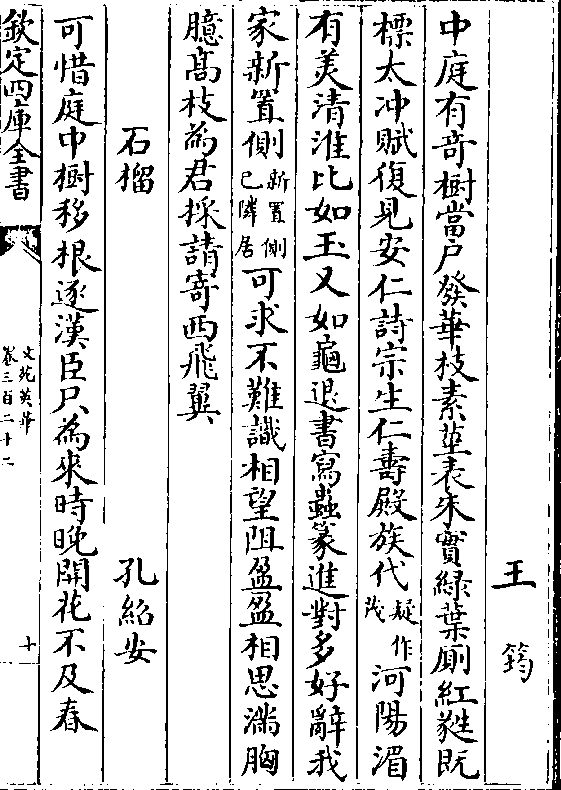 王筠
中庭有竒樹當戶發華枝素莖表朱實綠葉厠紅蕤既
標太冲賦復見安仁詩宗生仁壽殿族代疑作茂河陽湄
有美清淮比如玉又如龜退書寫蟲篆進對多好辭我
家新置側新置側已隣居可求不難識相望阻盈盈相思滿胸
臆髙枝為君採請寄西飛翼
石榴 孔紹安
可惜庭中樹移根逐漢臣只為來時晚開花不及春
欽定四庫全書
文苑英華
卷三百二十二
十